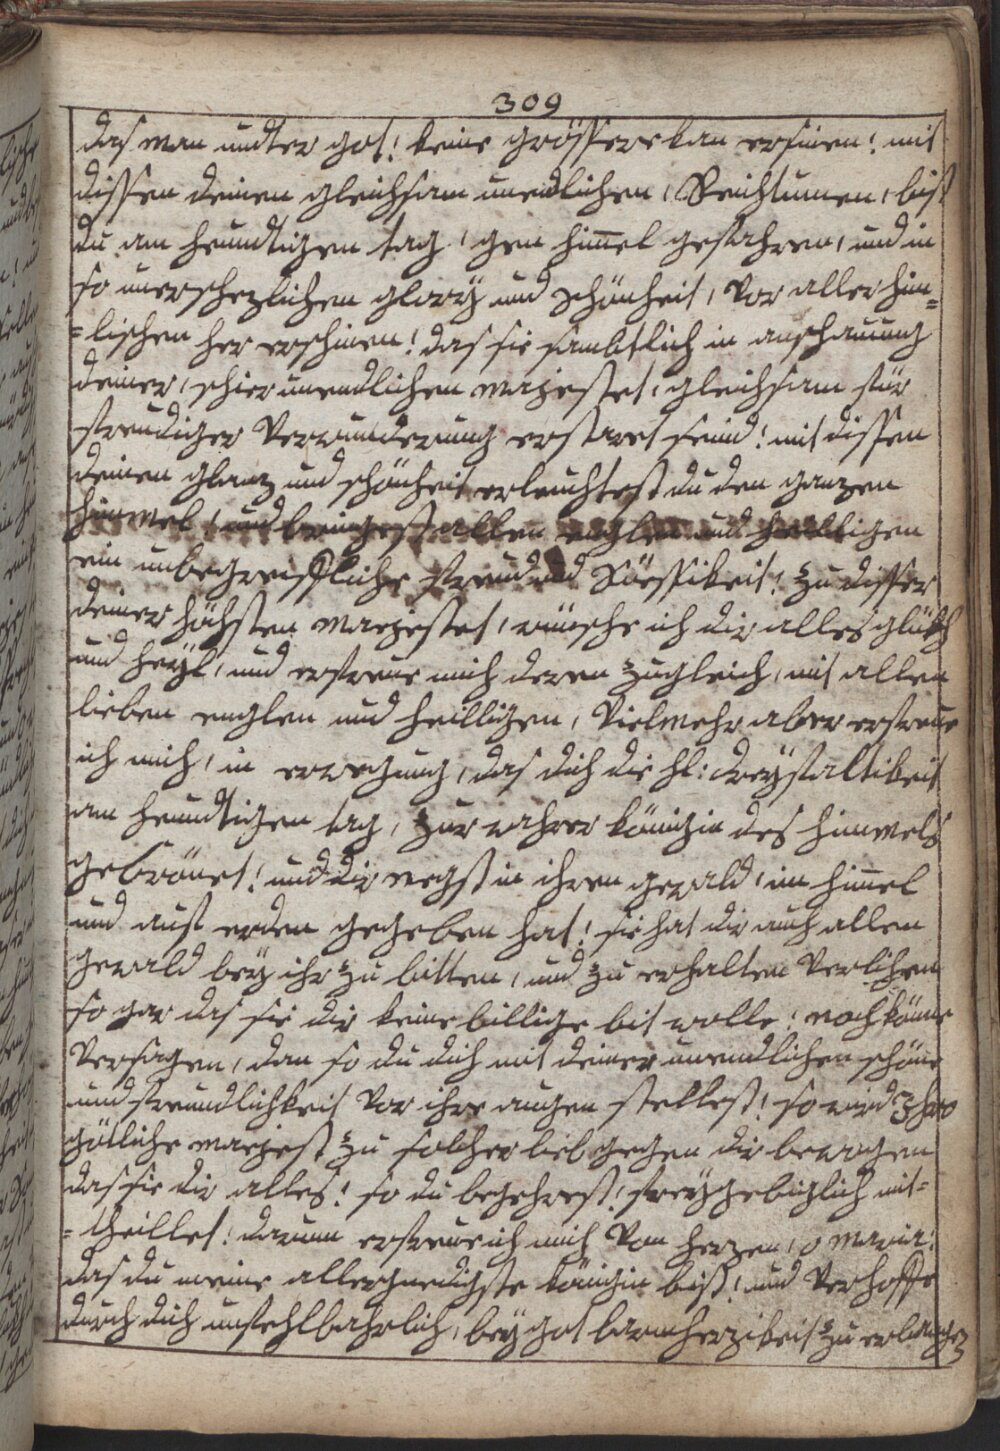 309
das man undter got! keine grössere kan ersinen! mit
dissen deinen gleichsam unendlichen, Reichtumen, bist
du am heundtigen tag, gen him̄el gefahren, und in
so unerschezlichen glory und schönheit, vor aller him=
=lischen her erschinen! das sie sambtlich in anschauung
deiner, schier unendlichen majestet, gleichsam für
freudiger Verwunderung erstaret seind! mit dissen
deinen glanz und schönheit erleuchtest du den ganzen
himmel, und bringest allen englen und heilligen
ein unbegreiffliche freud und Süessikeit! zu disser
deiner höchsten majestet, wünsche ich dir alles glükh
und heyl, und erfreue mich deren zugleich, mit allen
lieben englen und heilligen, Vielmehr aber erfreue
ich mich, in erwegung, das dich die hl: dreyfaltikeit
am heundtigen tag, zur wahrer königin des himmels
gekrönet! und dir negst in ihren gewald, im him̄el
und auf erden gegeben hat! sie hat dir auch allen
gewald bey ihr zu bitten, und zu erhalten Verlihen
so gar das sie dir keine billige bit wolle, noch könne
Versagen, dan so du dich mit deiner unendlichen schöne
und freundlichkeit vor ihre augen stellest! so wird Ihro
götliche majest zu solcher lieb gegen dir bewogen
das sie dir alles! so du begehrest! freygebiglich mit=
=theillet! darum erfreue ich mich von herzen, o maria:
das du meine allergnedigste königin bist! und Verhoffe
durch dich unfehlbahrlich, bey got barmherzikeit zu erlangen